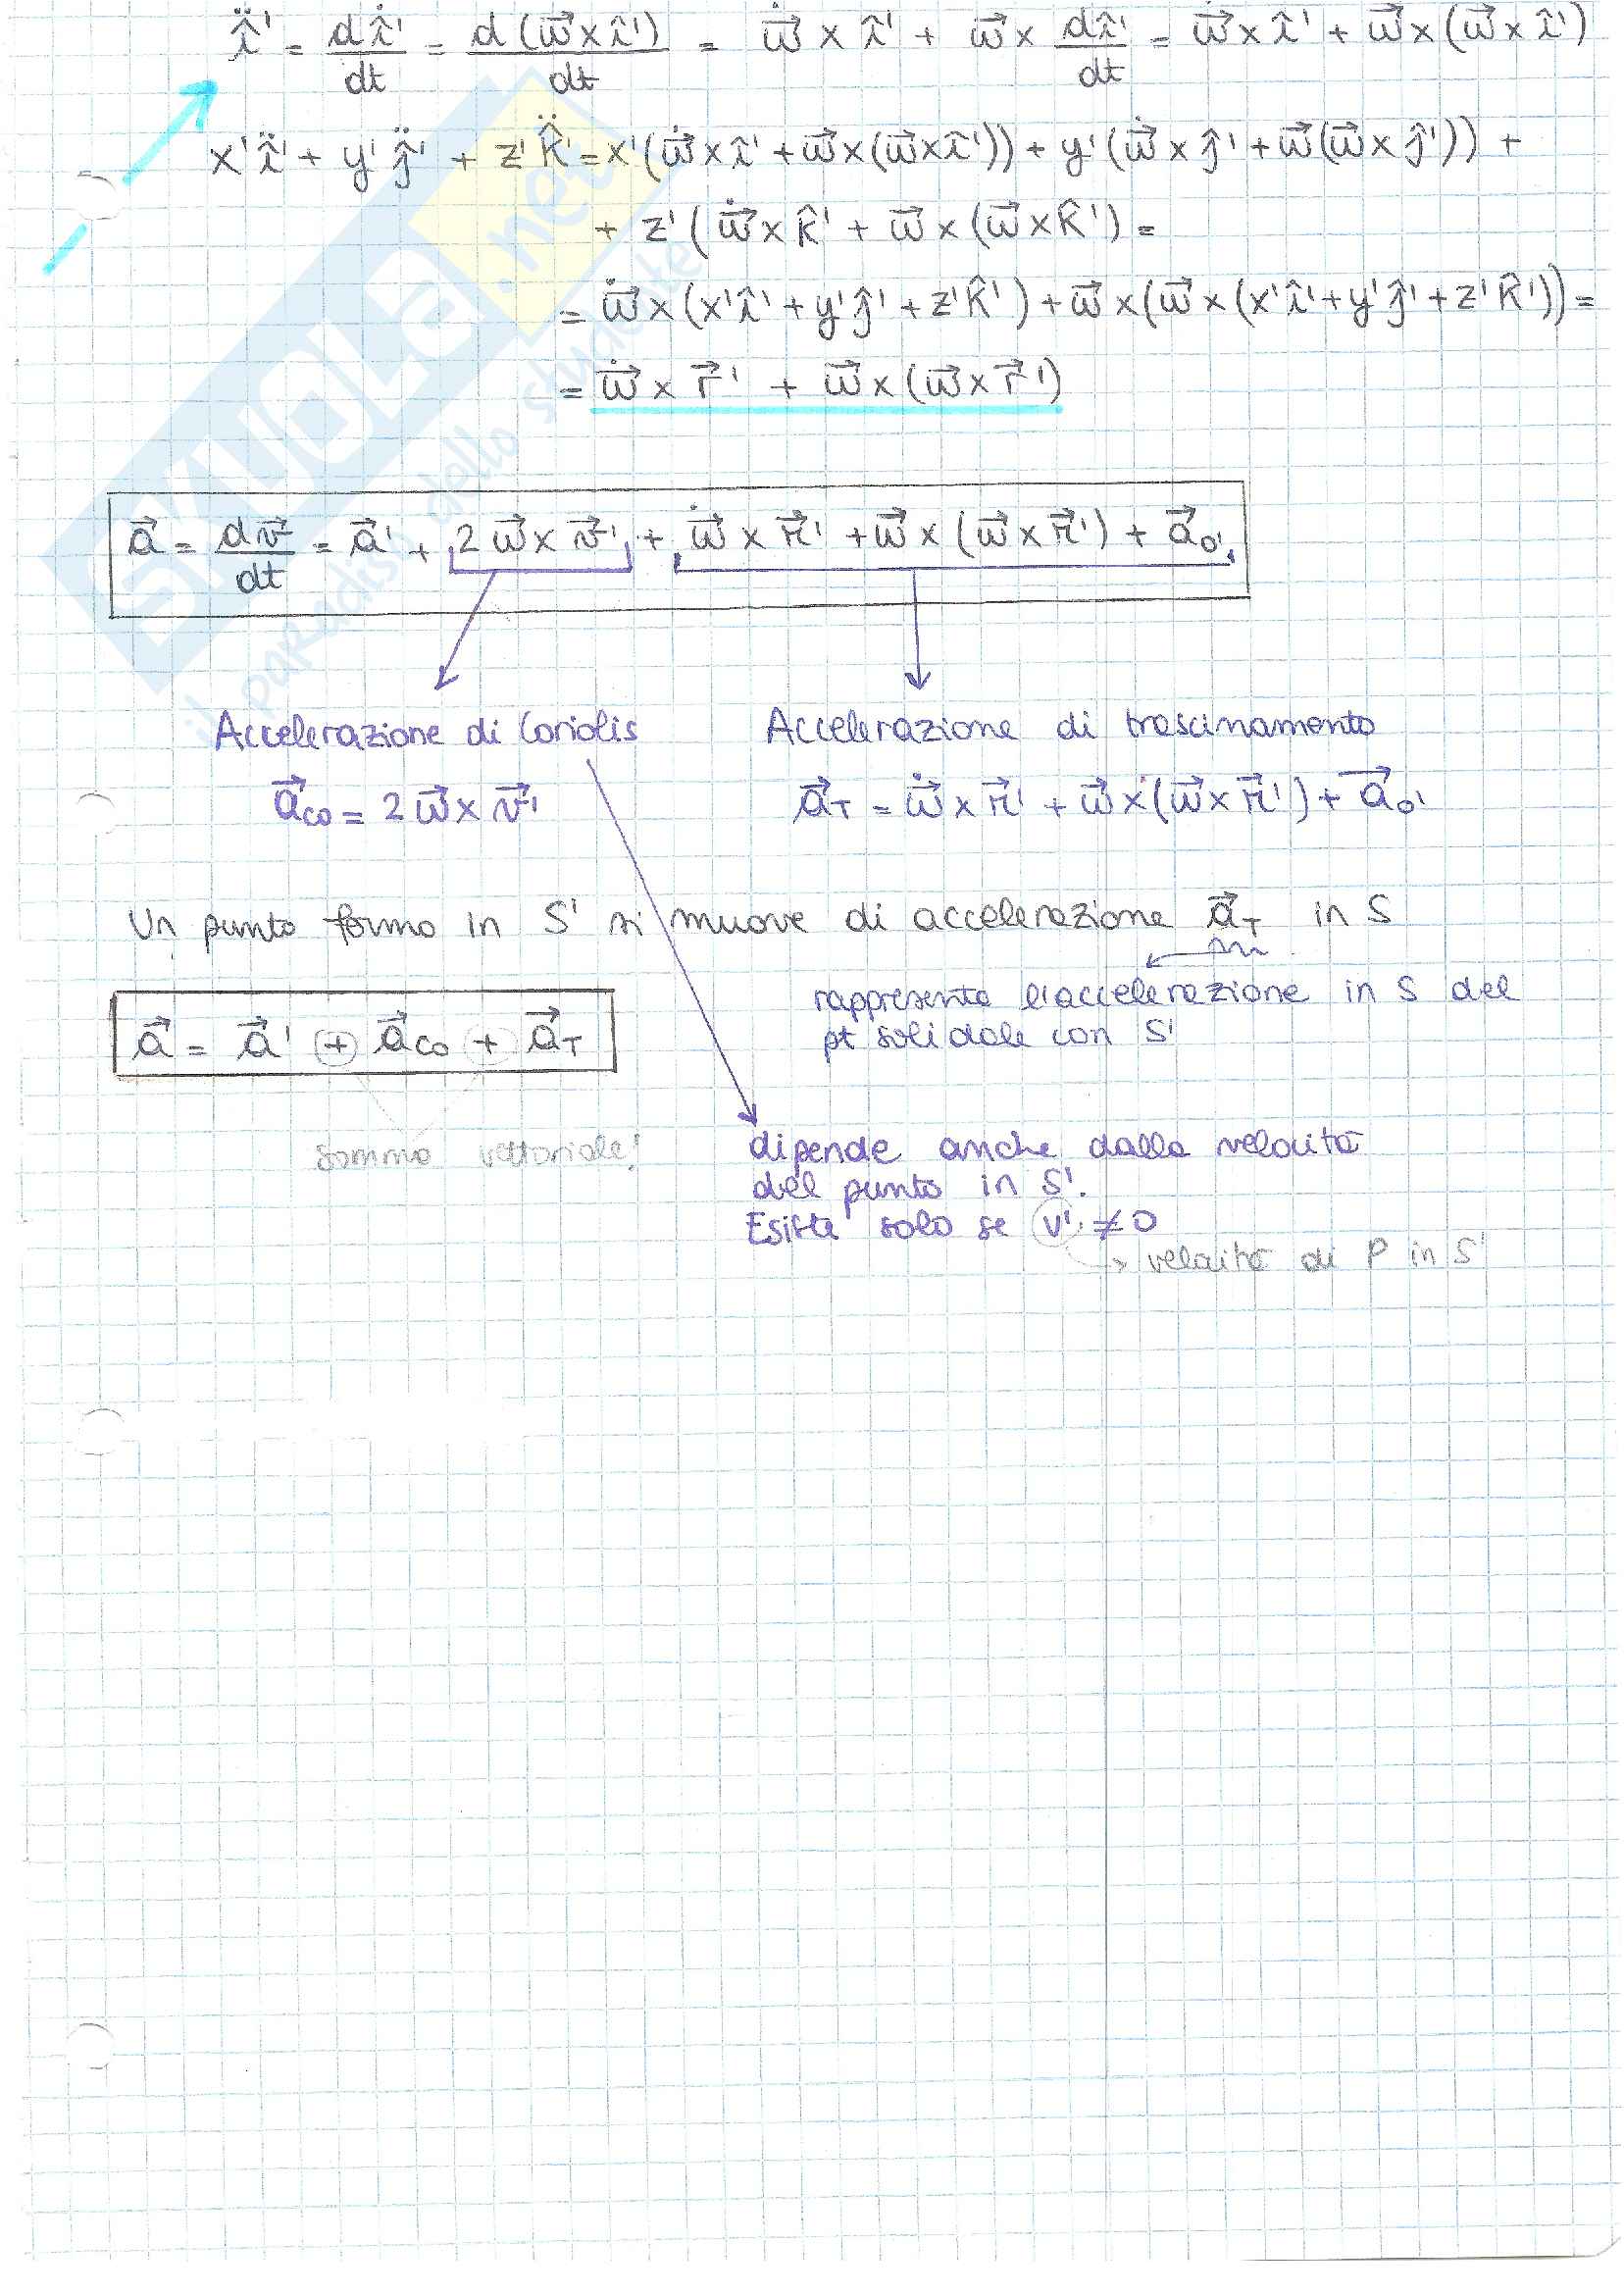 î̈' = dî̇'/dt = d(ω⃗×î')/dt = ω⃗̇ × î' + ω⃗ × dî'/dt = ω⃗̇ × î' + ω⃗ × (ω⃗ × î')
x'î̈' + y'ĵ̈' + z'k̂̈' = x'(ω⃗̇ × î' + ω⃗ × (ω⃗ × î')) + y'(ω⃗̇ × ĵ' + ω⃗(ω⃗ × ĵ')) +
+ z'(ω⃗̇ × k̂' + ω⃗ × (ω⃗ × k̂') =
= ω⃗̇ × (x'î' + y'ĵ' + z'k̂') + ω⃗ × (ω⃗ × (x'î' + y'ĵ' + z'k̂')) =
= ω⃗̇ × r⃗' + ω⃗ × (ω⃗ × r⃗')
a⃗ = dv⃗/dt = a⃗' + 2ω⃗ × v⃗' + ω⃗̇ × r⃗' + ω⃗ × (ω⃗ × r⃗') + a⃗o'
Accelerazione di Coriolis Accelerazione di trascinamento
a⃗co = 2ω⃗ × v⃗' a⃗T = ω⃗̇ × r⃗' + ω⃗ × (ω⃗ × r⃗') + a⃗o'
Un punto fermo in S' si muove di accelerazione a⃗T in S
rappresenta l'accelerazione in S del
pt solidale con S'
a⃗ = a⃗' + a⃗co + a⃗T
somma vettoriale!
dipende anche dalla velocità
del punto in S'.
Esiste solo se v' ≠ 0
→ velocità di P in S'
SKUOLA.net
il paradiso dello studente